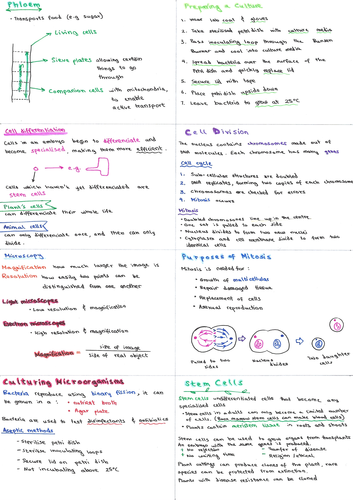 Phloem
- Transports food (e.g sugar)
Living cells
Sieve plates allowing certain
things to go
through
Companion cells with mitochondria,
to enable
active transport
Preparing a Culture
1. Wear lab coat & gloves
2. Take sterilised petri dish with culture media
3. Pass inoculating loop through the Bunsen
Burner and cool into culture media
4. Spread bacteria over the surface of the
Petri dish and quickly replace lid
5. Secure lid with tape
6. Place petri dish upside down
7. Leave bacteria to grow at 25°C
Cell differentiation
Cells in an embryo begin to differentiate and
become specialised, making them more efficient.
e.g
Cells which haven't yet differentiated are
stem cells
Plant's cells
can differentiate their whole life.
Animal cells
can only differentiate once, and then can only
divide.
Cell Division
The nucleus contains chromosomes made out of
DNA molecules. Each chromosome has many genes
Cell cycle
1. Sub-cellular structures are doubled
2. DNA replicates, forming two copies of each chromosome
3. Chromosomes are checked for errors
4. Mitosis occurs
Mitosis
• Doubled chromosomes line up in the centre
• One set is pulled to each side
• Nucleus divides to form two new nuclei
• Cytoplasm and cell membrane divide to form two
identical cells
Microscopy
Magnification how much larger the image is
Resolution how easily two points can be
distinguished from one another
Light microscopes
- Low resolution & magnification
Electron microscopes
- High resolution & magnification
Magnification = size of image
size of real object
Purposes of Mitosis
Mitosis is needed for:
• Growth of multicellular
• Repair damaged tissue
• Replacement of cells
• Asexual reproduction
Pulled to two
sides
Nucleus
divides
Two daughter
cells
Culturing Microorganisms
Bacteria reproduce using binary fission, it can
be grown in a: • nutrient broth
• Agar plate
Bacteria are used to test disinfectants & antibiotics
Aseptic methods
- Sterilise petri dish
- Sterilise inoculating loops
- Secure lid on petri dish
- Not incubating above 25°C
Stem Cells
Stem cells - undifferentiated cells that become any
specialised cells
• Stem cells in adults can only become a limited number
of cells
• Plants contain meristem tissue in roots and shoots
Stem cells can be used to grow organs from transplants
No rejection
No waiting time
Transfer of disease
Plant cutting can produce clones of the plant, rare
species can be protected from extinction.
Plants with disease resistance can be cloned